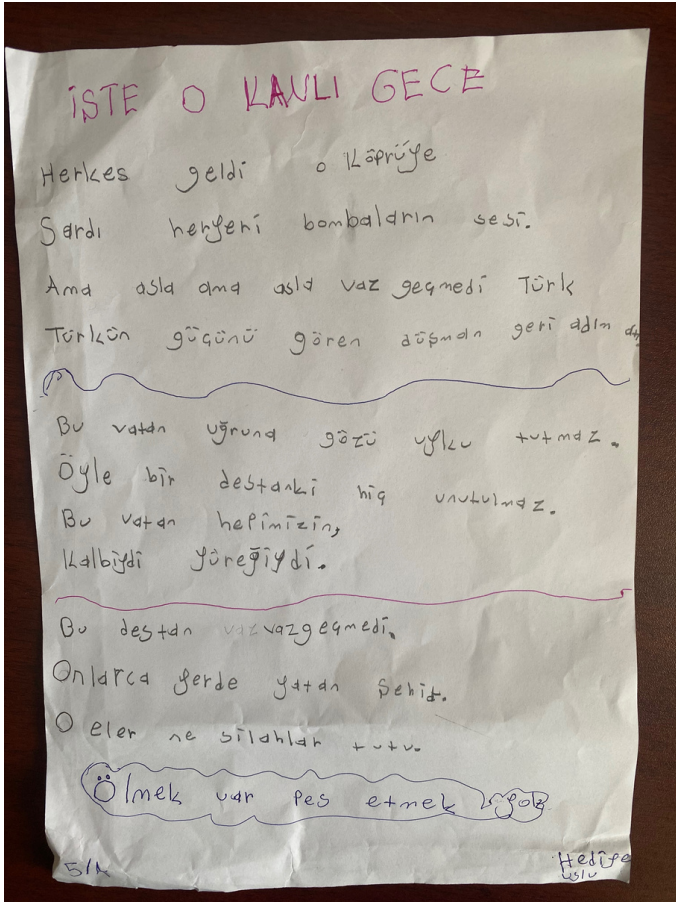 İSTE O KANLI GECE
Herkes geldi o Köprüye
Sardı heryeri bombaların sesi.
Ama asla ama asla vaz geçmedi Türk
Türkün güçünü gören düşman geri adım
Bu vatan uğruna gözü uyku tutmaz.
Öyle bir destanki hiç unutulmaz.
Bu vatan hepimizin,
Kalbiydi yüreğiydi.
Bu destan vaz vazgeçmedi.
Onlarca yerde yatan Şehit.
O eler ne silahlar tutu.
Ölmek var pes etmek yok
5/A
Hediye
uslu